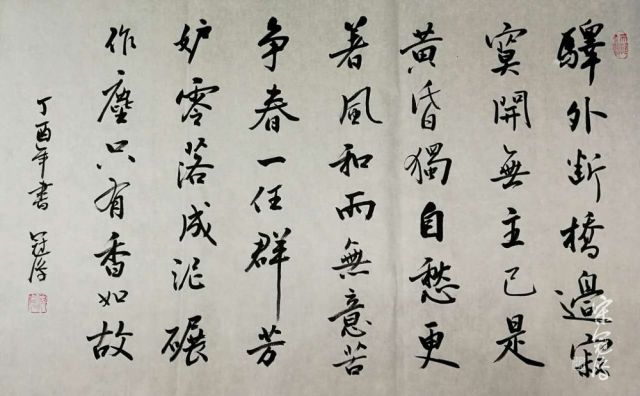 驛外斷橋邊寂
寞開無主已是
黃昏獨自愁更
著風和雨無意苦
争春一任群芳
妒零落成泥碾
作塵只有香如故
丁酉年書